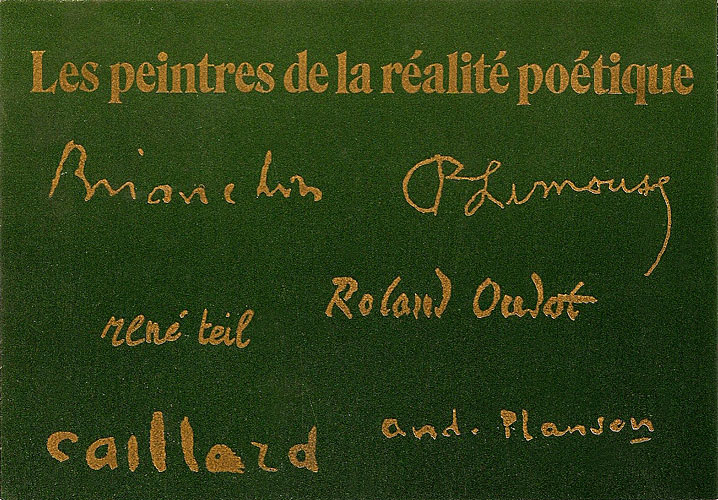 Les peintres de la réalité poétique
Brianchon
R Limouse
Roland Oudot
rené teil
caillard
and. Planson